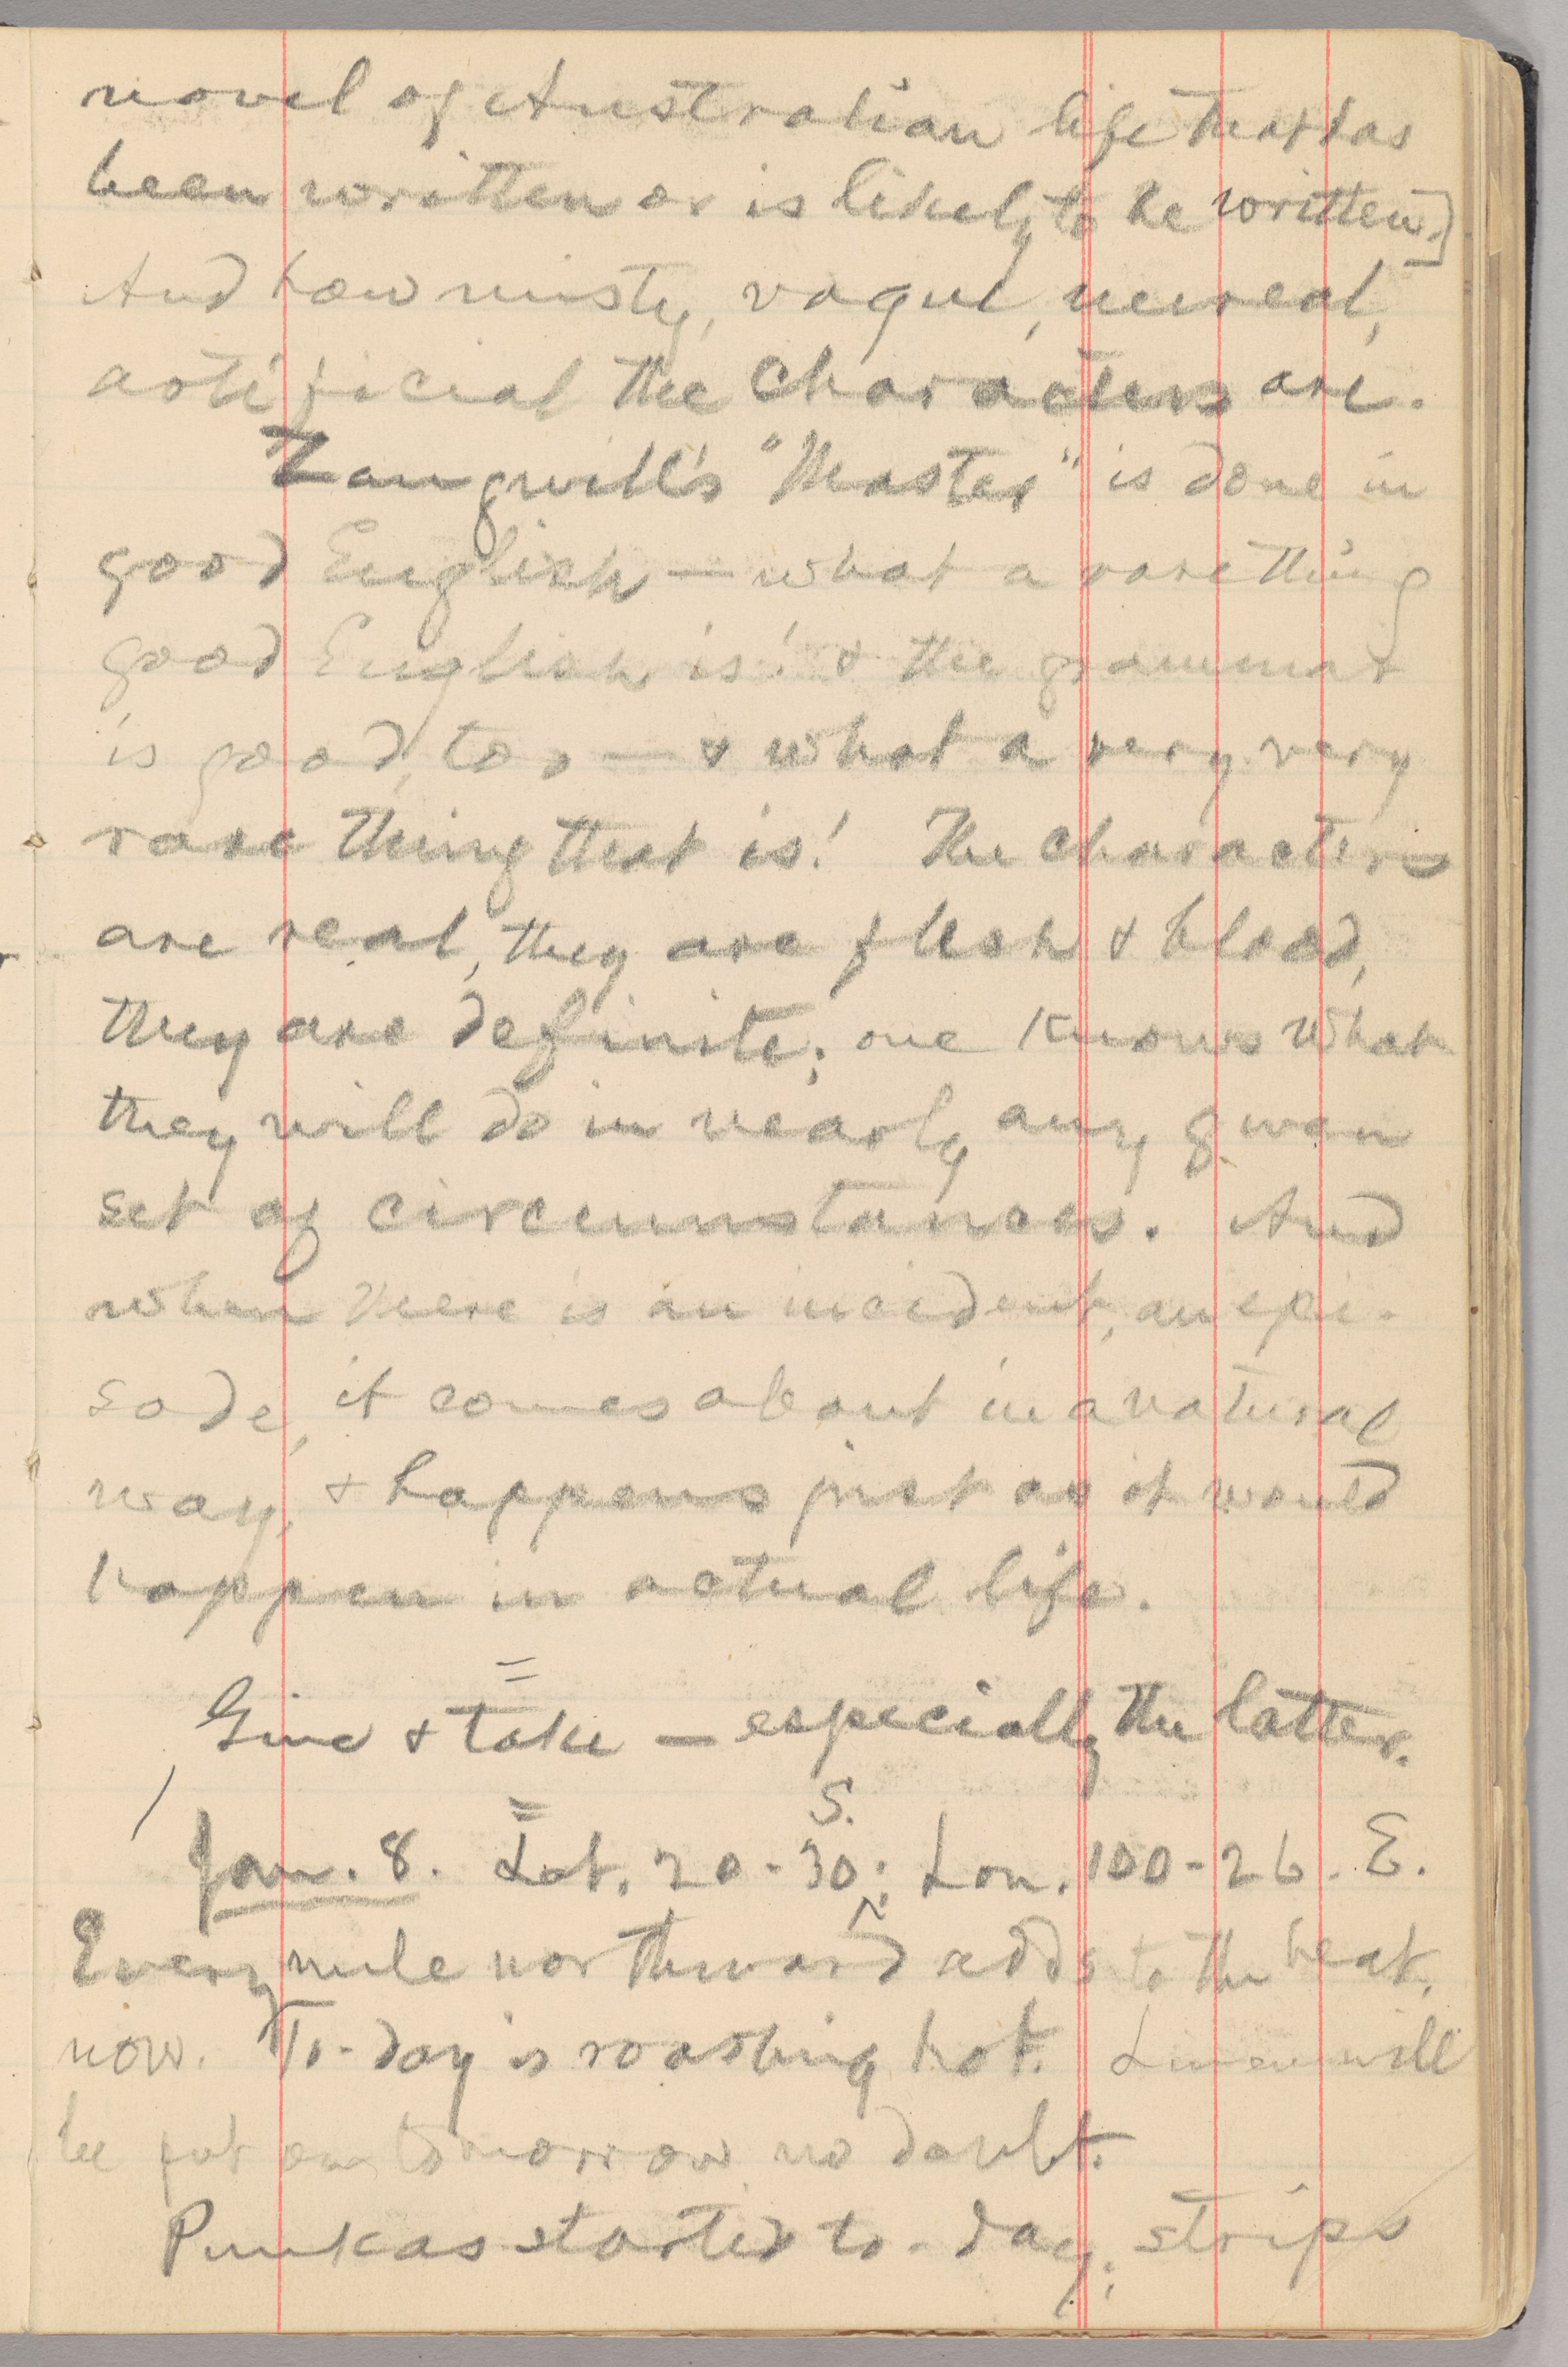 novel of Australian life that has
been written or is likely to be written.]
And how misty, vague, unreal,
artificial the characters are.
Zangwill's "Master" is done in
good English — what a rare thing
good English is! & the grammar
is good, too — & what a very, very
rare thing that is! The characters
are real, they are flesh & blood,
they are definite; one knows what
they will do in nearly any given
set of circumstances. And
when there is an incident, an epi-
sode, it comes about in a natural
way, & happens just as it would
happen in actual life.
=
Give & take — especially the latter.
=
S.
/ Jan. 8. Lat. 20-30; Lon. 100-26. E.
Every mile northward adds to the heat,
now. To-day is roasting hot. Linen will
be put on tomorrow no doubt.
Punkas started to-day; strips